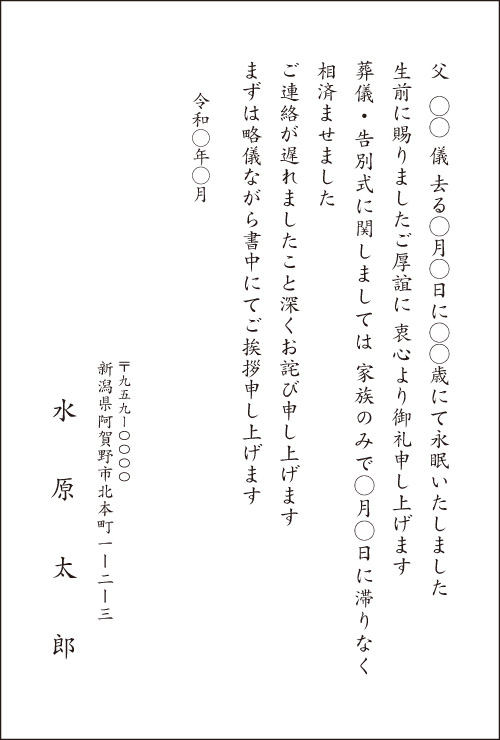 父 〇〇 儀 去る〇月〇日に〇〇歳にて永眠いたしました
生前に賜りましたご厚誼に 衷心より御礼申し上げます
葬儀・告別式に関しましては 家族のみで〇月〇日に滞りなく
相済ませました
ご連絡が遅れましたこと深くお詫び申し上げます
まずは略儀ながら書中にてご挨拶申し上げます
令和〇年〇月
〒九五九ー〇〇〇〇
新潟県阿賀野市北本町一ー二ー三
水原太郎